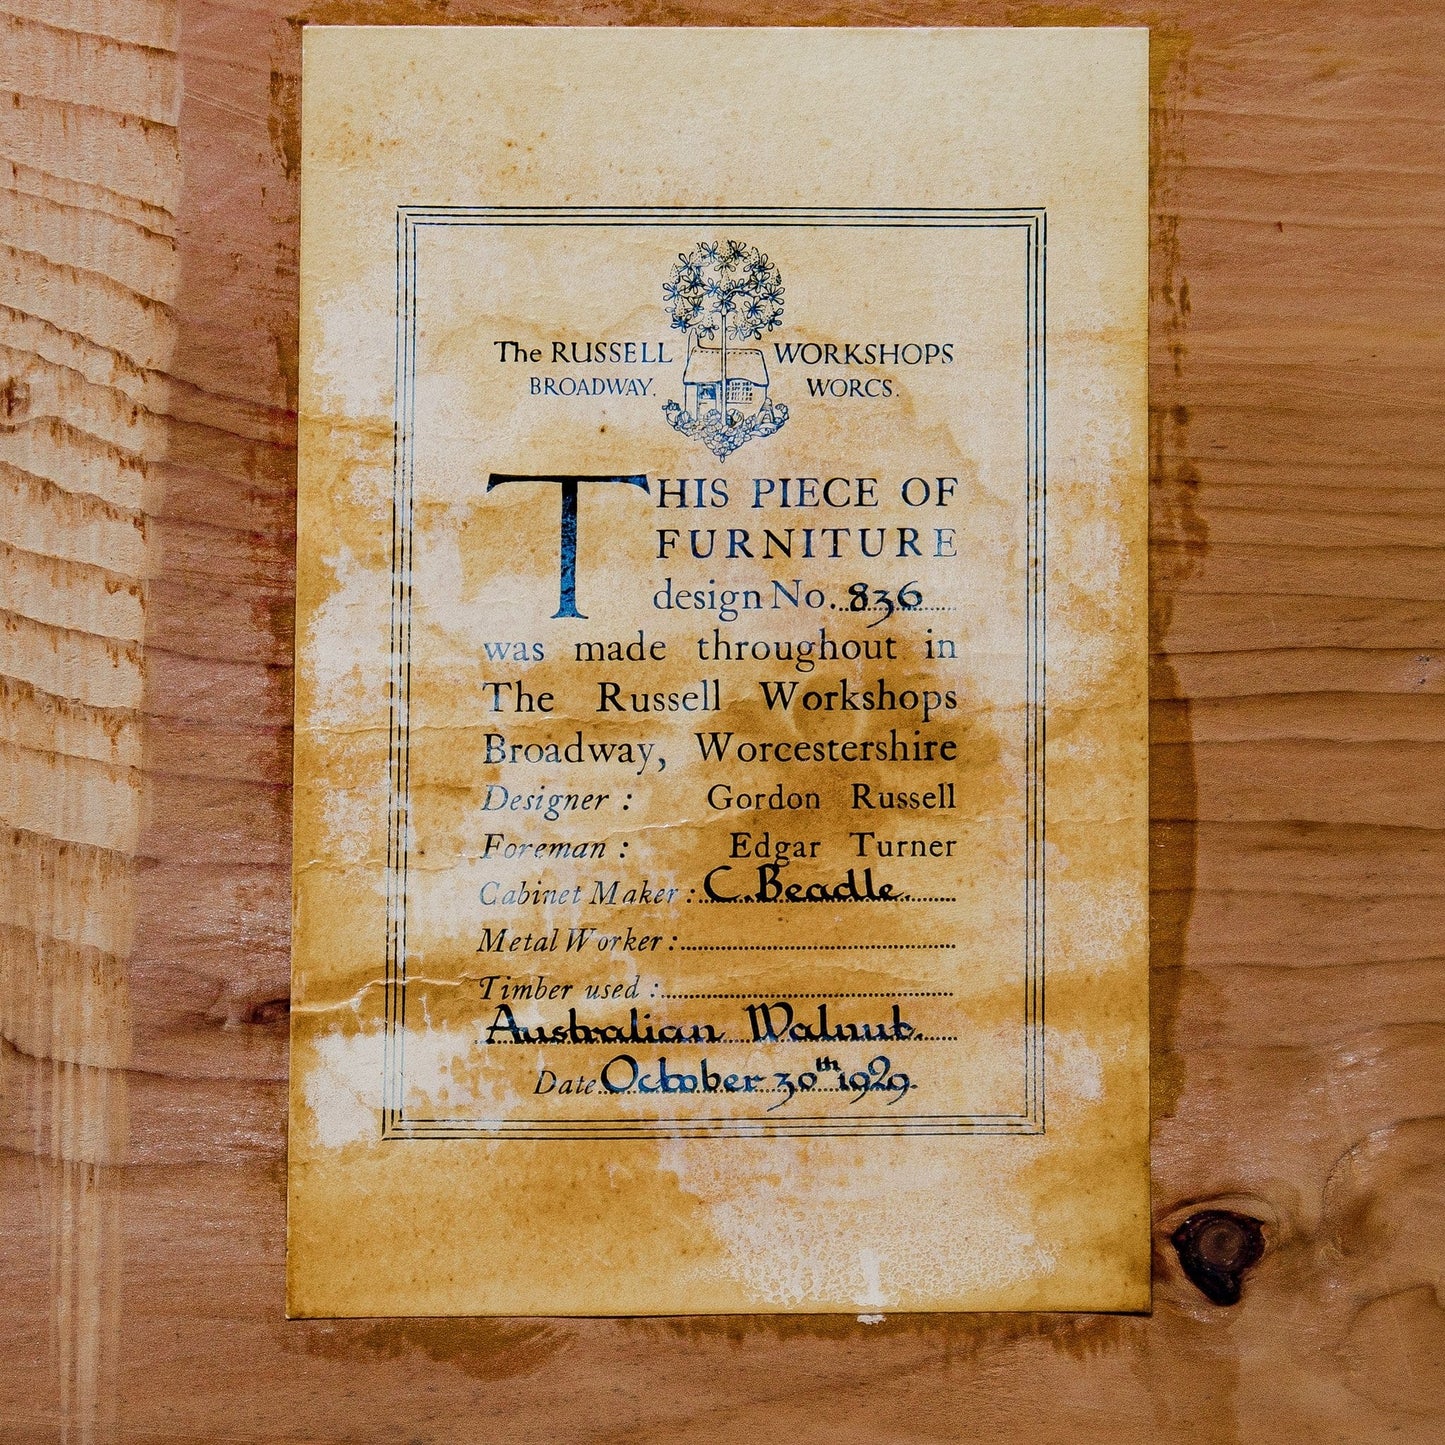 The RUSSELL WORKSHOPS
BROADWAY. WORCS.
THIS PIECE OF
FURNITURE
design No. 836
was made throughout in
The Russell Workshops
Broadway, Worcestershire
Designer : Gordon Russell
Foreman : Edgar Turner
Cabinet Maker : C. Beadle.
Metal Worker :
Timber used :
Australian Walnut.
Date October 30th 1929.